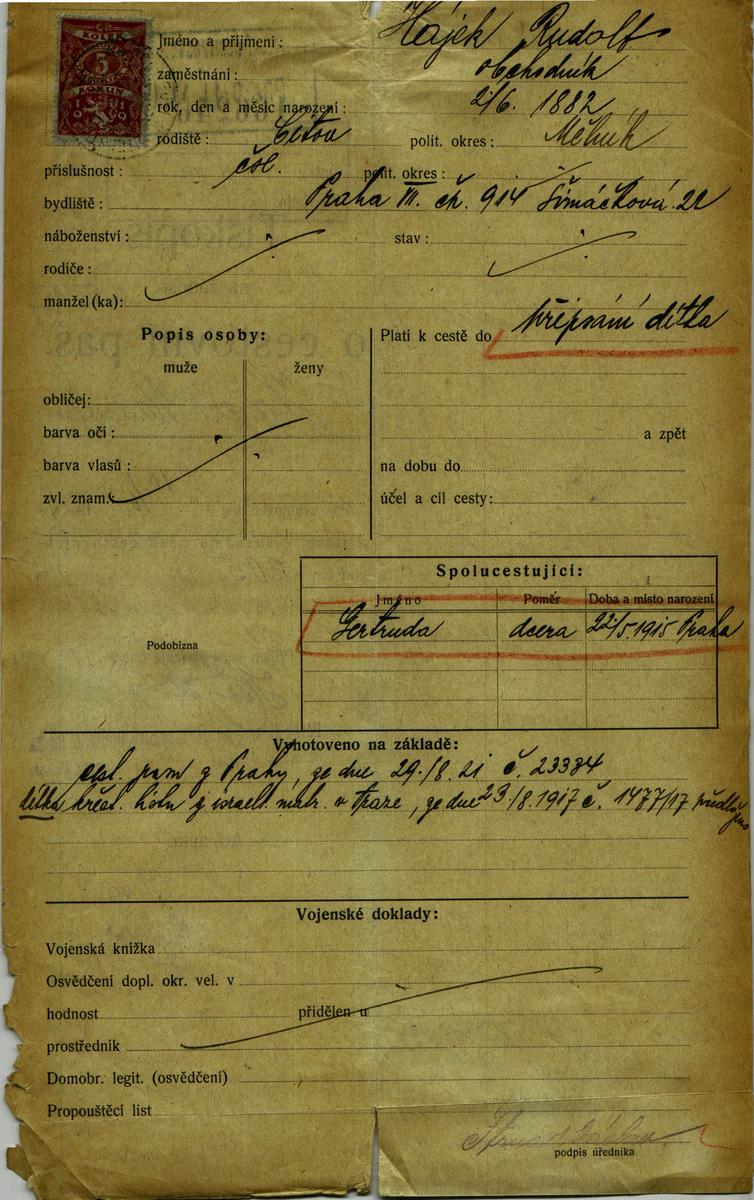 KOLEK
5
KORUN
1919
Jméno a příjmení: Hájek Rudolf
zaměstnání: obchodník
rok, den a měsíc narození: 2/6. 1882
rodiště: Citov polit. okres: Mělník
příslušnost: čsl. polit. okres:
bydliště: Praha VII. čh. 914 Šimáčková 22
náboženství: stav:
rodiče:
manžel(ka):
Popis osoby:
muže ženy
obličej:
barva očí:
barva vlasů:
zvl. znam.
Platí k cestě do připsání dítka
a zpět
na dobu do
účel a cíl cesty:
Podobizna
Spolucestující:
Jméno Poměr Doba a místo narození
Gertruda dcera 22/5. 1915 Praha
Vyhotoveno na základě:
cest. pasu z Prahy, ze dne 29./8. 21 č. 23384
dítka křest. listu z israel. matr. v Praze, ze dne 23/8. 1917 č. 1477/17
Vojenské doklady:
Vojenská knížka
Osvědčení dopl. okr. vel. v
hodnost přidělen u
prostředník
Domobr. legit. (osvědčení)
Propouštěcí list
podpis úředníka